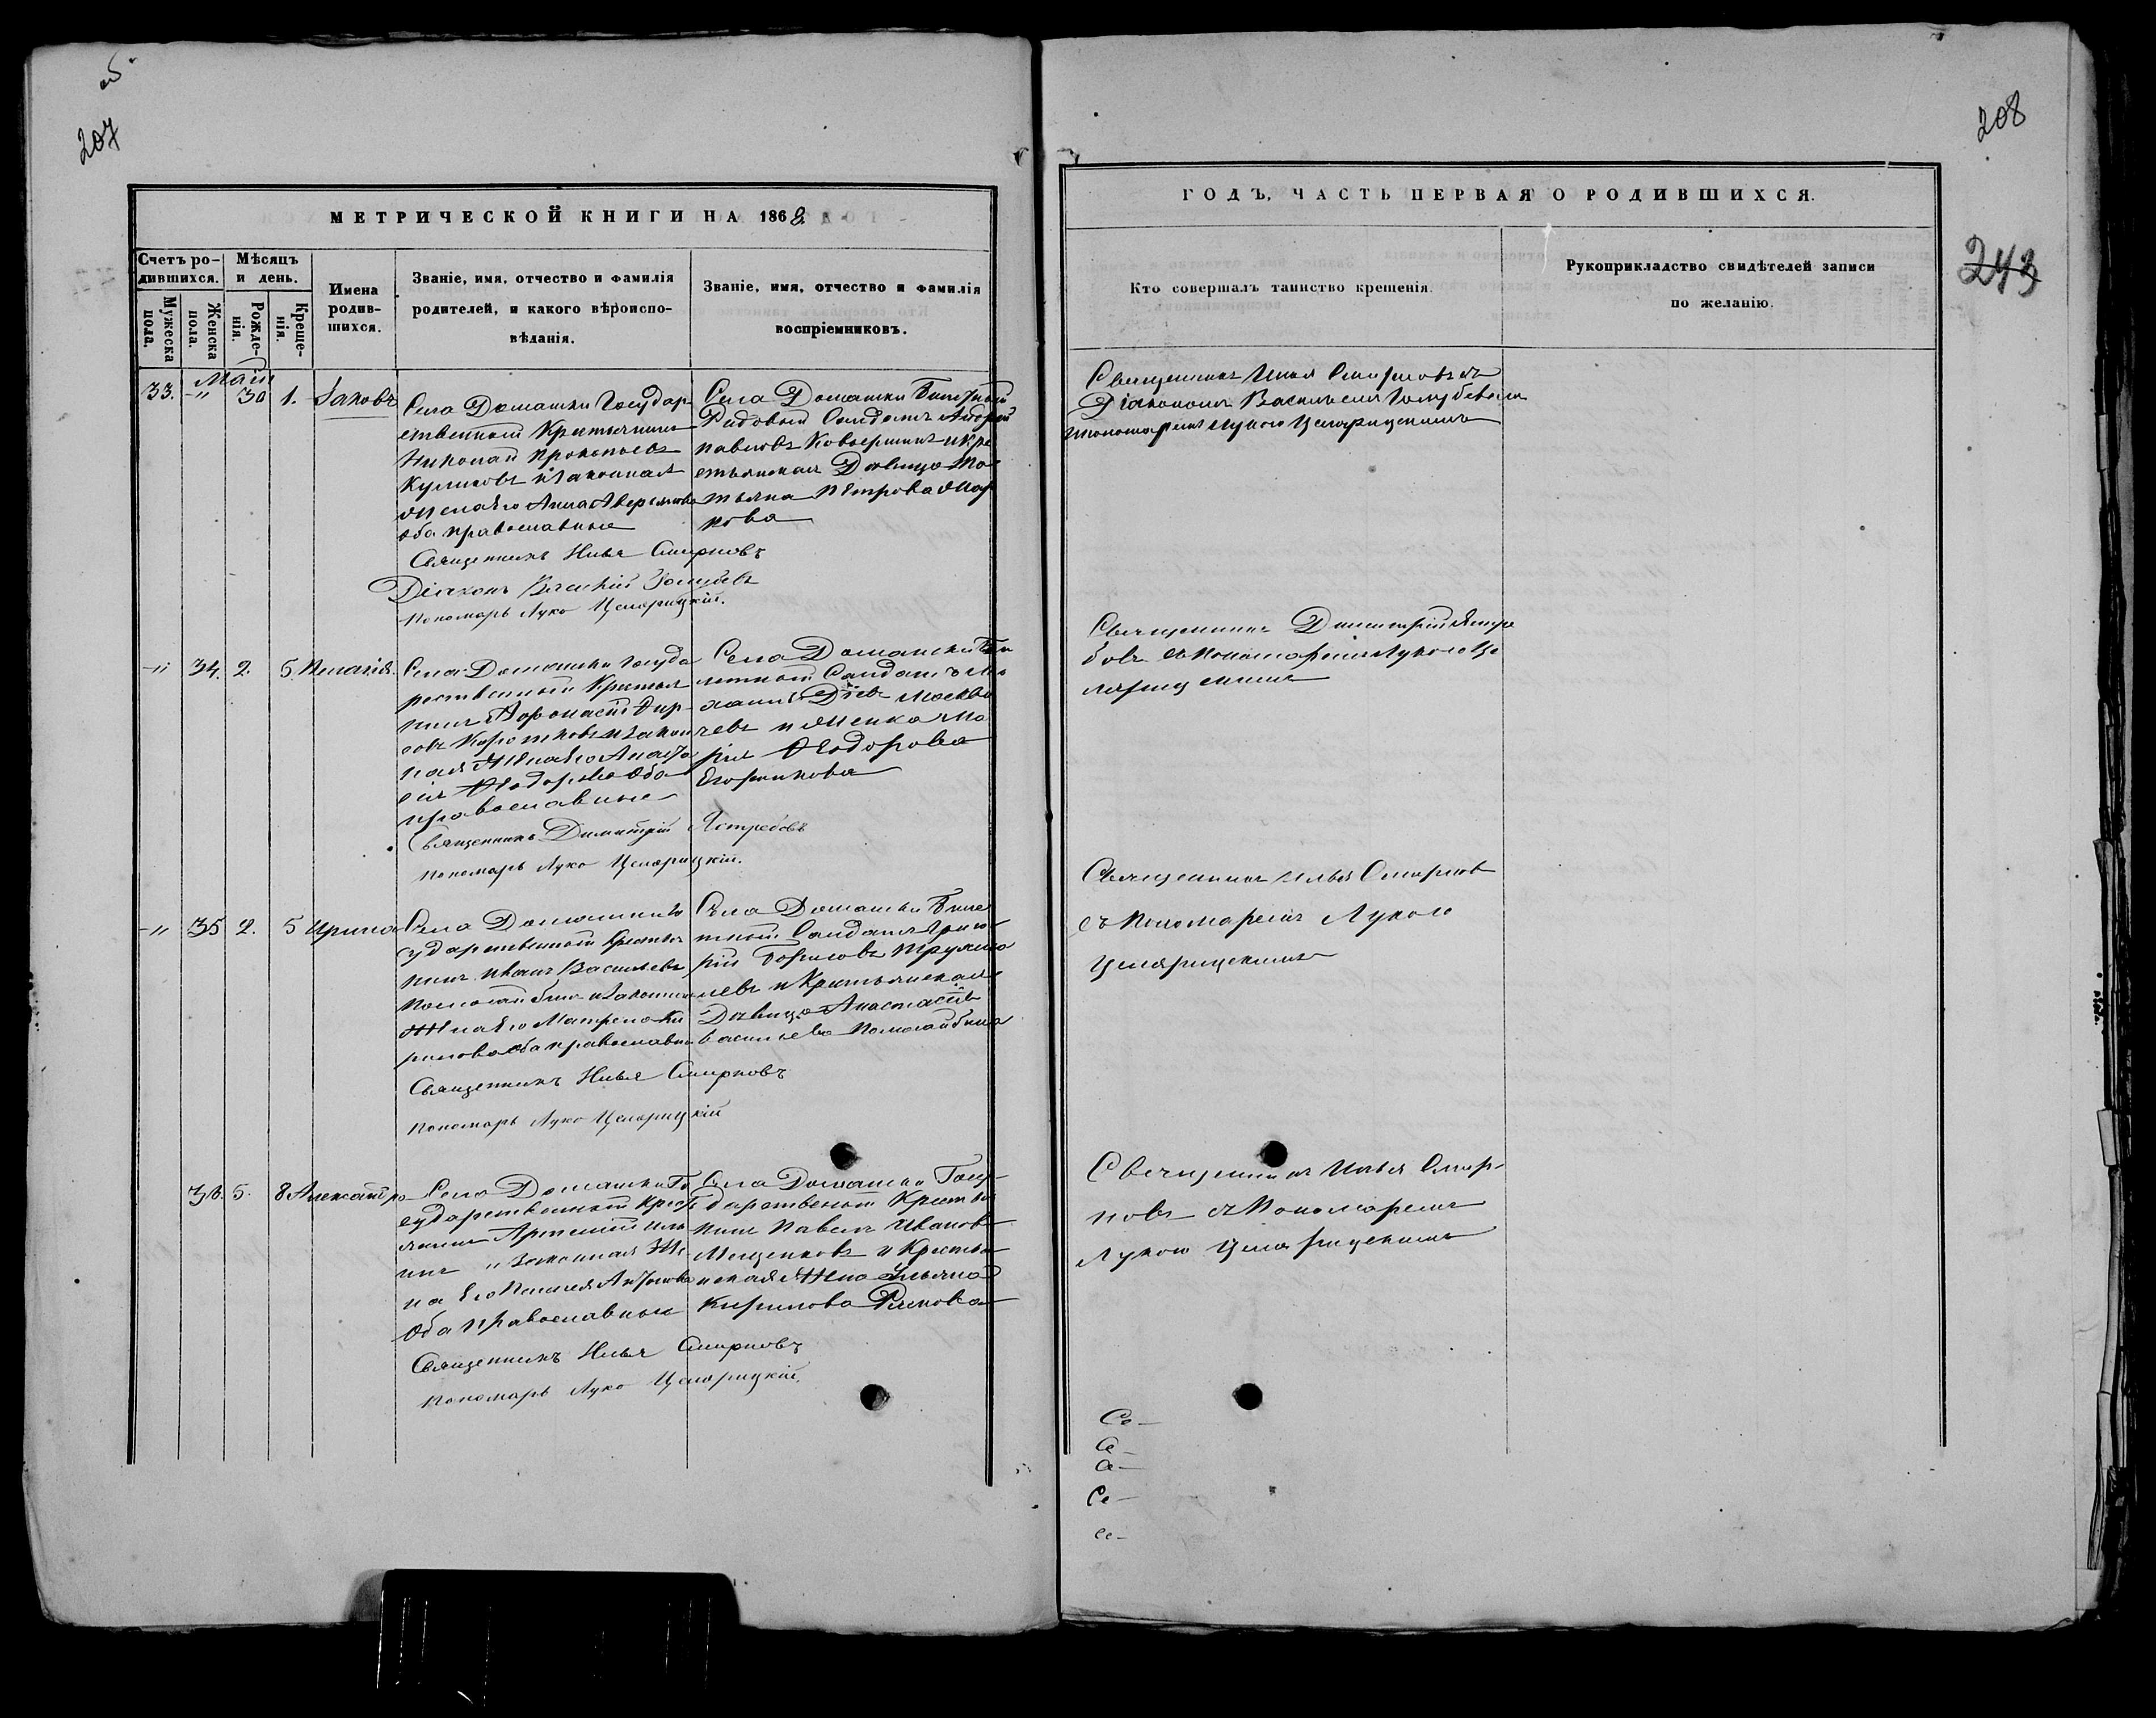 об.
207
МЕТРИЧЕСКОЙ КНИГИ НА 1868
Счетъ ро-
дившихся.
Мѣсяцъ
и день.
Мужеска
пола.
Женска
пола.
Рожде-
нія.
Креще-
нія.
Имена
родив-
шихся.
Званіе, имя, отчество и фамилія
родителей, и какого вѣроиспо-
вѣданія.
Званіе, имя, отчество и фамилія
воспріемниковъ.
Маій
33. -"- 30 1. Іаковъ
Села Домашки Государ
ственный Крестьянинъ
Николай Прокопьевъ
Куликовъ и Законная
Жена Его Анна Аверьянова
оба православные
Села Домашки
Рядовый Солдатъ Андрей
Павловъ и Кре
стьянская Дѣвица Та
тьяна Петрова Мар
кова
Священникъ Илья Смирновъ
Діаконъ Василій Голубевъ
Пономарь Лука Целарицкій.
-"- 34. 2. 5. Пелагія.
Села Домашки Госуда
рственный Крестья
нинъ Афонасій Фир
совъ Коротковъ и Закон
ная Жена Его Анаста
сія Ѳеодорова Оба
православные
Села Домашки Би
летный Солдатъ Ми
хаилъ Москви
чевъ и Женка Ма
рія Ѳеодорова
Егорникова
Священникъ Димитрій Ястребовъ
Пономарь Лука Целарицкій.
-"- 35 2. 5 Ирина
Села Домашки Го
сударственный Крестья
нинъ Иванъ Васильевъ
Помогайбинъ и Законная
Жена Его Матрена Ки
рилова Оба православные
Села Домашки Биле
тный Солдатъ Григо
рій Борисовъ
левъ и Крестьянская
Дѣвица Анастасія
Васильева Помогайбина
Священникъ Илья Смирновъ
Пономарь Лука Целарицкій
36. 5. 8 Александра
Села Домашки Го
сударственный Кресть
янинъ Артемій Иль
инъ и Законная Же
на Его Пелагея Антонова
Оба православные
Села Домашки Госу
дарственный Крестья
нинъ Павелъ Ивановъ
Мещенковъ и Крестья
нская Жена Ульяна
Кирилова
Священникъ Илья Смирновъ
Пономарь Лука Целарицкій.
208
243
ГОДЪ, ЧАСТЬ ПЕРВАЯ О РОДИВШИХСЯ.
Кто совершалъ таинство крещенія.
Рукоприкладство свидѣтелей записи
по желанію.
Священникъ Илья Смирновъ съ
Діакономъ Василіемъ Голубевымъ
и пономаремъ Лукою Целарицкимъ
Священникъ Димитрій Ястре
бовъ съ Пономаремъ Лукою Це
ларицкимъ
Священникъ Илья Смирнов
съ Пономаремъ Лукою
Целарицкимъ
Священникъ Илья Смир-
новъ съ Пономаремъ
Лукою Целарицкимъ